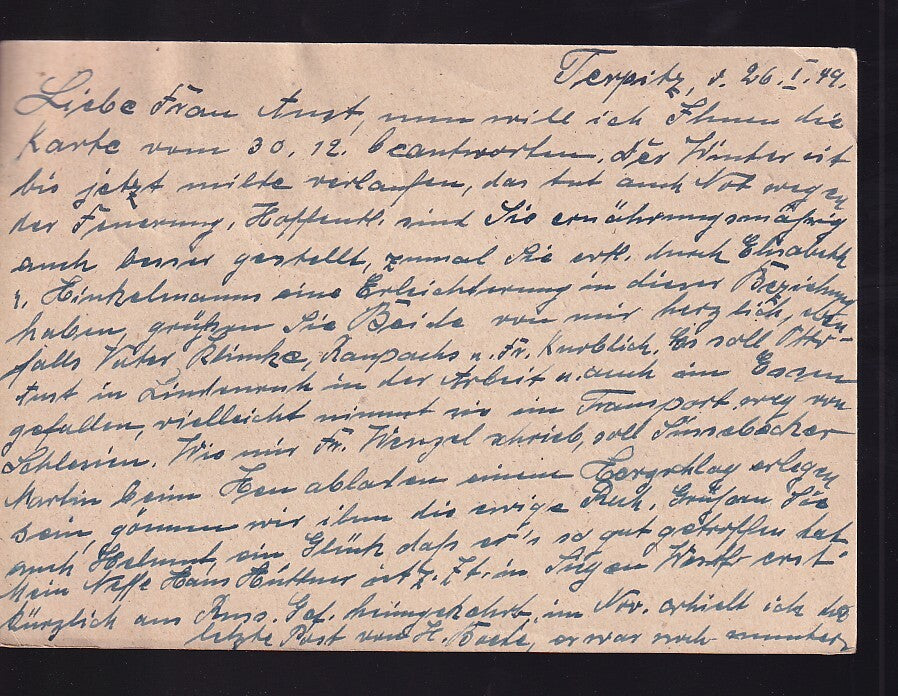 Terpitz, d. 26.I.49.
Liebe Frau Anst, nun will ich Ihnen die
Karte vom 30.12. beantworten. Der Winter ist
bis jetzt milte verlaufen, das tut auch Not wegen
der Feuerung. Hoffentl. sind Sie ernährungsmäßig
auch besser gestellt, zumal Sie evtl. durch Elisabeth
u. Hinkelmanns eine Erleichterung in dieser Beziehung
haben, grüßen Sie Beide von mir herzlich, eben-
falls Vater Klimke, Raupachs u. Fr. Knoblich. Es soll Otto-
Anst in Lindenruh in der Arbeit u. auch im Essen
gefallen, vielleicht nimmt sie ein Transport weg von
Schlesien. Wie mir Fr. Wenzel schrieb, soll Süssebäcker
Martin beim Heu abladen einem Herzschlag erlegen
sein, gönnen wir ihm die ewige Ruh. Grüßen Sie
auch Helmut, ein Glück daß er's so gut getroffen hat
Mein Neffe Hans Hüttner ist z. Zt. in Westf. erst
kürzlich aus Russ. Gef. heimgekehrt, im Nov. erhielt ich die
letzte Post von H. er war noch munter